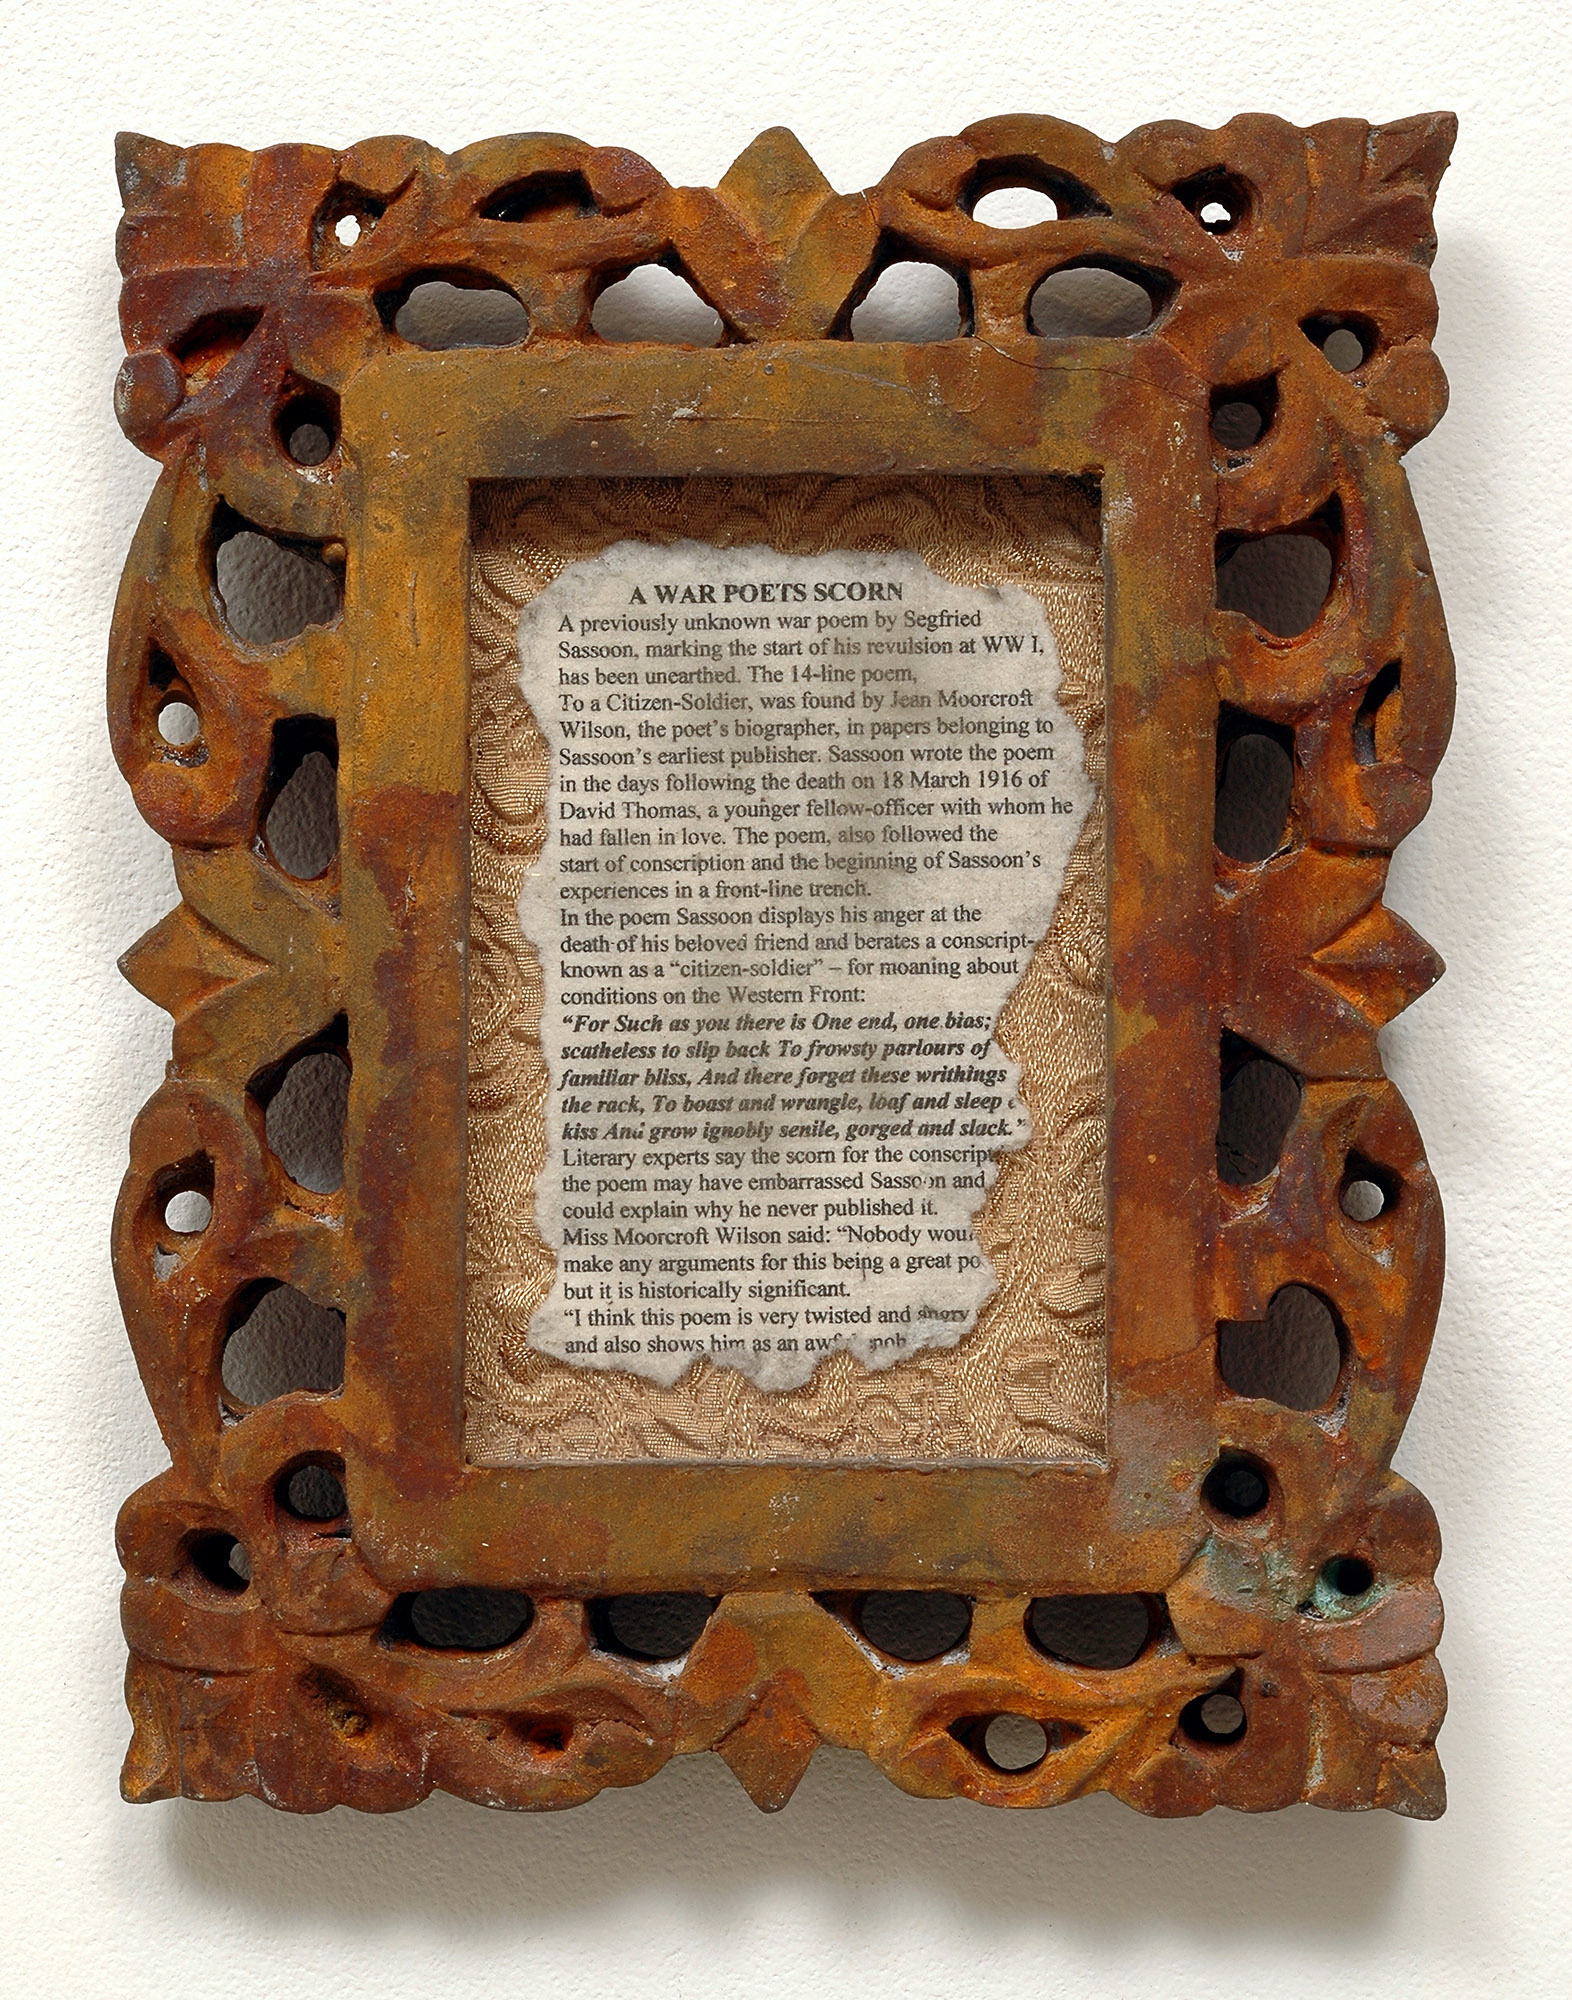 A WAR POETS SCORN
A previously unknown war poem by Segfried
Sassoon, marking the start of his revulsion at WW I,
has been unearthed. The 14-line poem,
To a Citizen-Soldier, was found by Jean Moorcroft
Wilson, the poet's biographer, in papers belonging to
Sassoon's earliest publisher. Sassoon wrote the poem
in the days following the death on 18 March 1916 of
David Thomas, a younger fellow-officer with whom he
had fallen in love. The poem, also followed the
start of conscription and the beginning of Sassoon's
experiences in a front-line trench.
In the poem Sassoon displays his anger at the
death of his beloved friend and berates a conscript-
known as a "citizen-soldier" – for moaning about
conditions on the Western Front:
"For Such as you there is One end, one bias;
scatheless to slip back To frowsty parlours of
familiar bliss, And there forget these writhings
the rack, To boast and wrangle, loaf and sleep
kiss And grow ignobly senile, gorged and slack."
Literary experts say the scorn for the conscript
the poem may have embarrassed Sassoon and
could explain why he never published it.
Miss Moorcroft Wilson said: "Nobody would
make any arguments for this being a great po
but it is historically significant.
"I think this poem is very twisted and angry
and also shows him as an